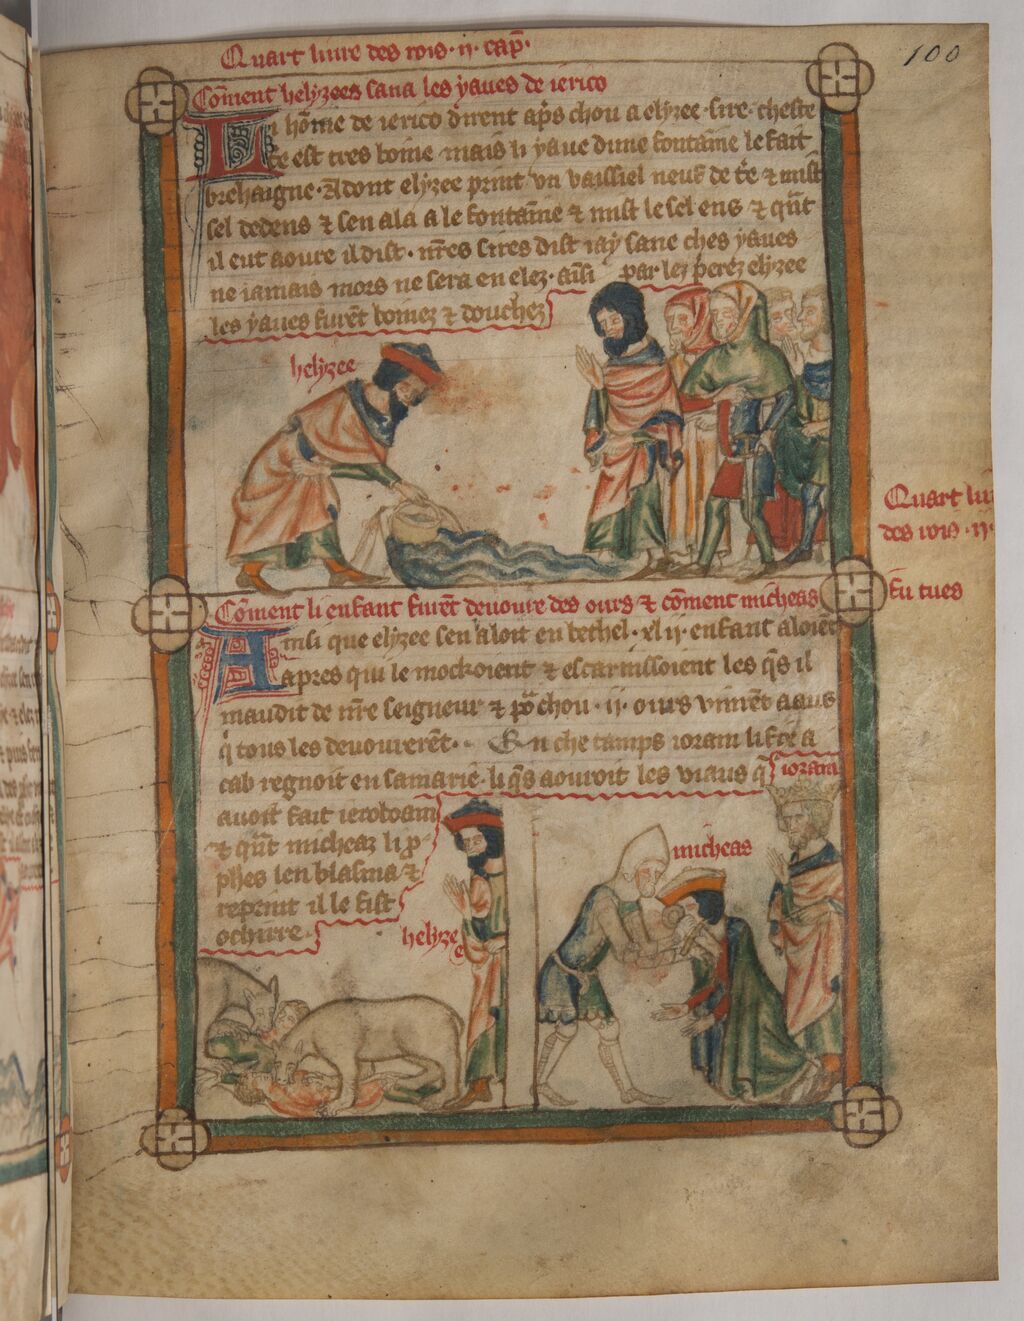 Quart liure des rois .ii. cap̄.
100
Cōment helyzees sana les yaues de ierico
Li hōme de ierico dirent ap̄s chou a elyzee . sire . cheste
t̄e est tres boine . mais li yaue dune fontaine le fait
brehaigne . Adont elyzee prinst vn vaissiel neuf de t̄e & mist
sel dedens & sen ala a le fontaine & mist le sel ens & qn̄t
il eut aoure il dist . nr̄es sires dist iay sane ches yaues
ne iamais mors ne sera en elez . ainsi par lez perez elyzee
les yaues furēt boinez & douchez
helyzee
Quart liu
des rois .ii.
Cōment li enfant furēt deuoure des ours & cōment micheas
fu tues
Ainsi que elyzee sen aloit en bethel . xl ii . enfant aloiēt
apres qui le mockoient & escarnissoient les qs̄ il
maudit de nr̄e seigneur & po chou . ii . ours vinrēt auus
q̄ tous les deuourerēt . En che tamps ioram li fix a
cab regnoit en samarie . li qs̄ aouroit les viaus q̄
ioram
auoit fait ieroboam
& qn̄t micheas li p̄
phes len blasma &
reprinst il le fist
ochirre .
helyzee
micheas